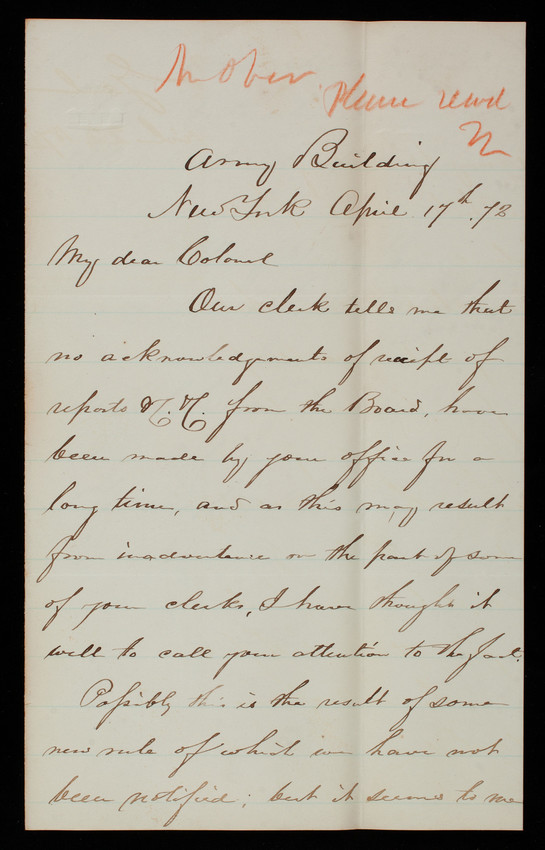 Mr Ober
Please read
Army Building
New York April 17th. 78
My dear Colonel
Our clerk tells me that
no acknowledgments of receipt of
reports &c. &c. from the Board, have
been made by your office for a
long time, and as this may result
from inadvertence on the part of some
of your clerks, I have thought it
well to call your attention to the fact.
Possibly this is the result of some
new rule of which we have not
been notified; but it seems to me